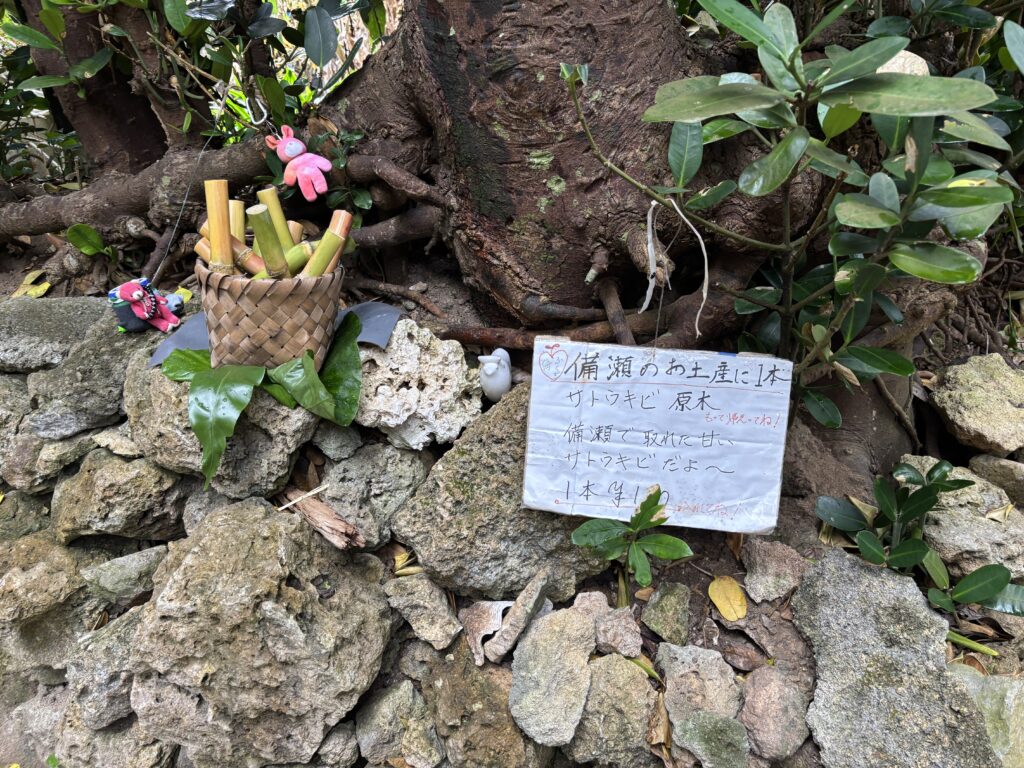 備瀬のお土産に1本
サトウキビ 原木
もって帰ってね!
備瀬で取れた甘い
サトウキビだよ〜
1本 ¥1